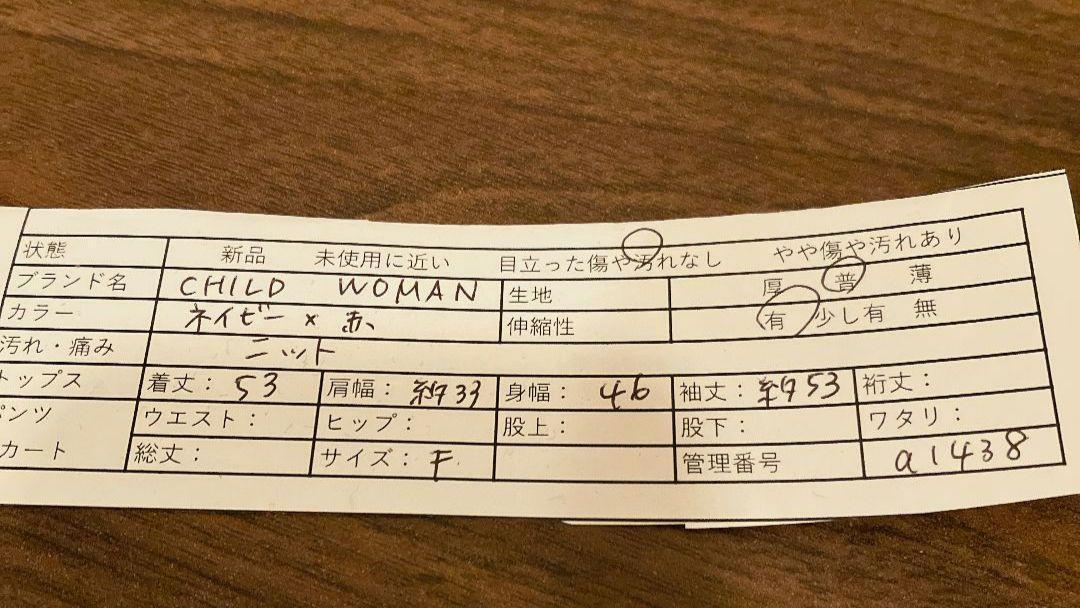 状態 新品 未使用に近い 目立った傷や汚れなし やや傷や汚れあり
ブランド名 CHILD WOMAN 生地 厚 普 薄
カラー ネイビー × 赤 伸縮性 有 少し有 無
汚れ・痛み ニット
トップス 着丈： 53 肩幅： 約33 身幅： 46 袖丈： 約53 裄丈：
パンツ ウエスト： ヒップ： 股上： 股下： ワタリ：
カート 総丈： サイズ： F 管理番号 a1438